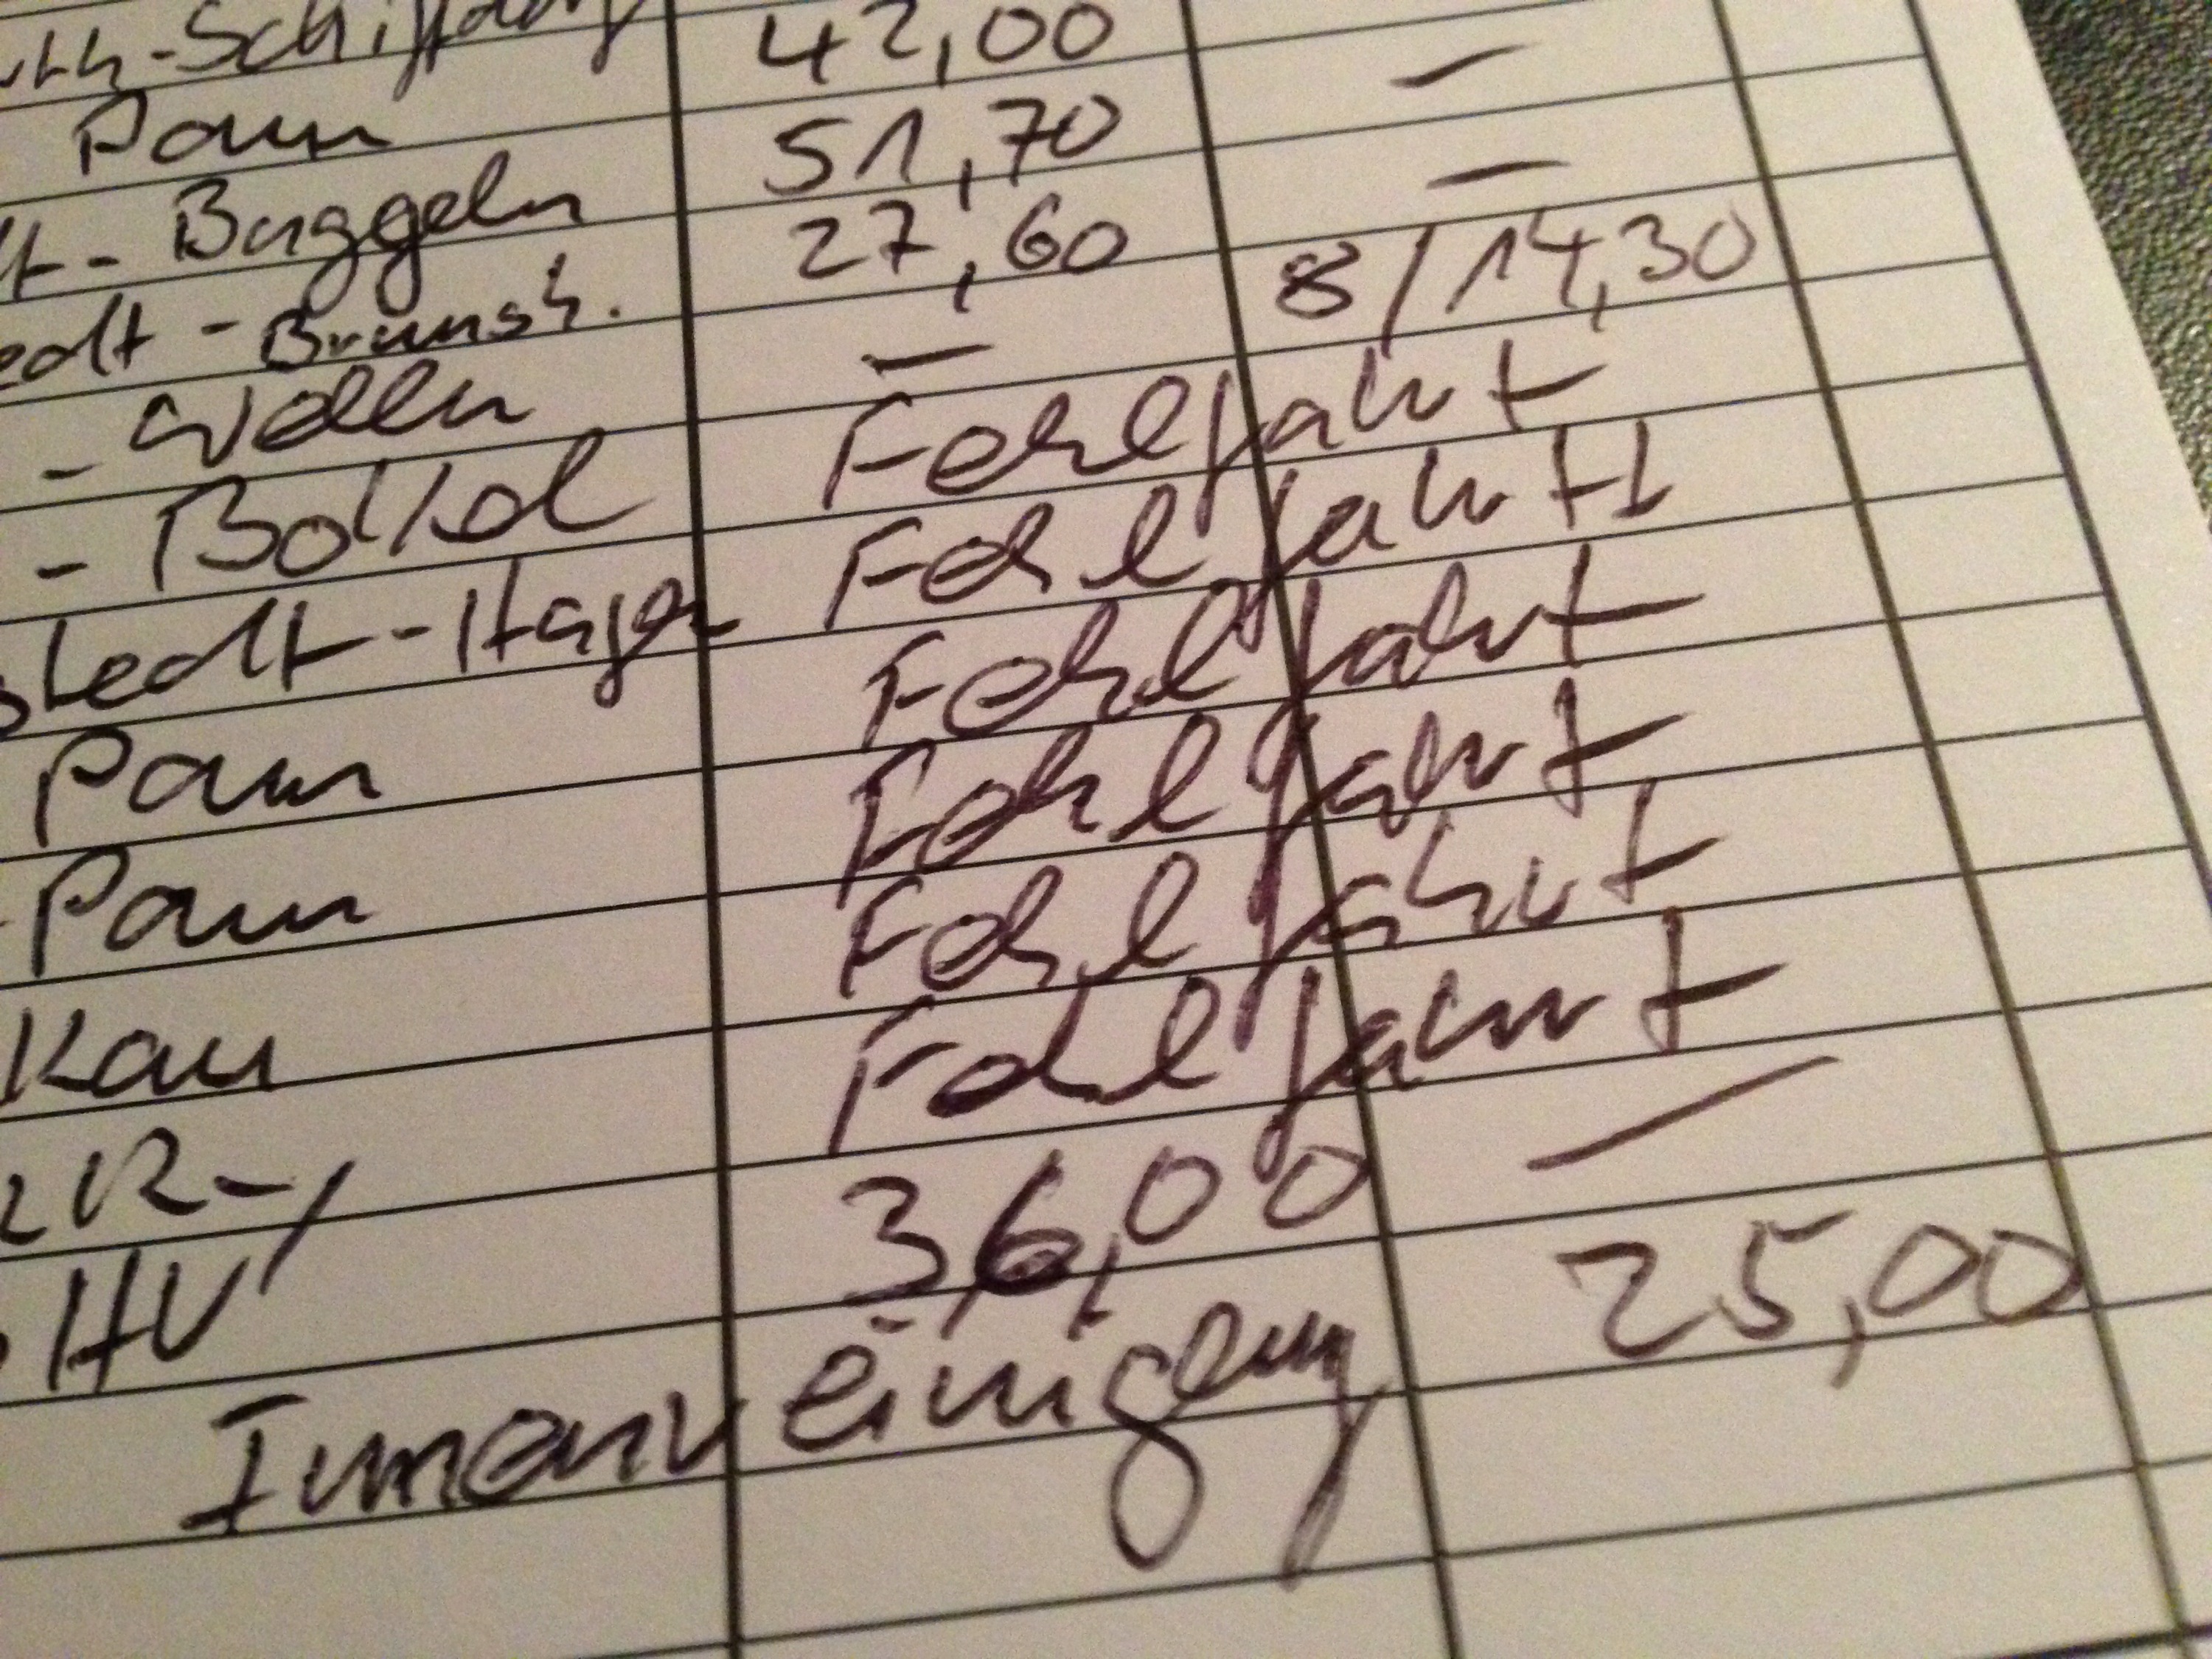 -Schiffdorf 42,00 –
Pam 51,70 –
lt - Buggeln 27,60 8/14,30
edt - Bramsh. –
- Wellen Fehlfahrt
- Bokel Fehlfahrt!
stedt - Hagen Fehlfahrt
Pam Fehlfahrt
- Pam Fehlfahrt
Kau Fehlfahrt
R - / 36,00 –
HV
Innenreinigung 25,00